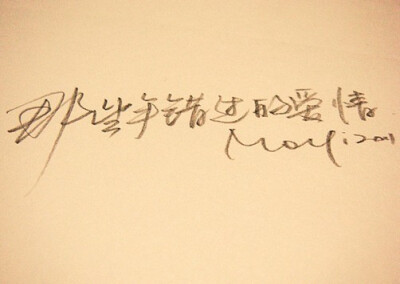 那些年错过的爱情